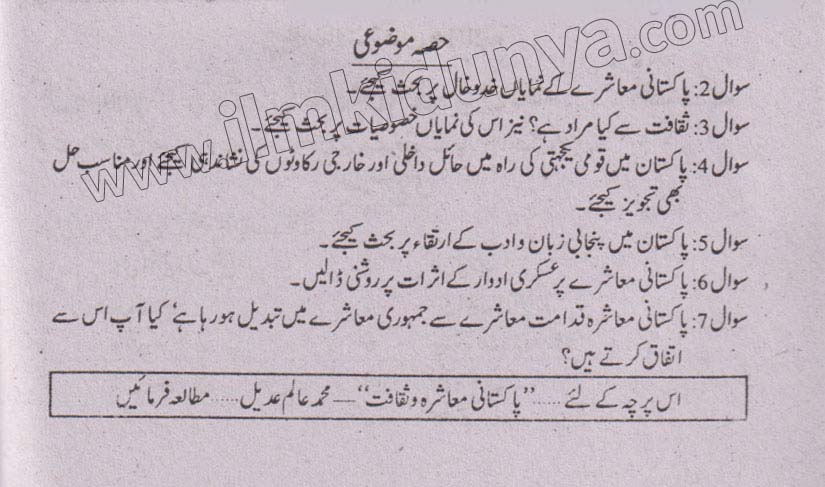 حصہ موضوعی
سوال 2: پاکستانی معاشرے کے نمایاں خدوخال پر بحث کیجئے۔
سوال 3: ثقافت سے کیا مراد ہے؟ نیز اس کی نمایاں خصوصیات پر بحث کیجئے۔
سوال 4: پاکستان میں قومی یکجہتی کی راہ میں حائل داخلی اور خارجی رکاوٹوں کی نشاندہی کیجئے اور مناسب حل
بھی تجویز کیجئے۔
سوال 5: پاکستان میں پنجابی زبان و ادب کے ارتقاء پر بحث کیجئے۔
سوال 6: پاکستانی معاشرے پر عسکری ادوار کے اثرات پر روشنی ڈالیں۔
سوال 7: پاکستانی معاشرہ قدامت معاشرے سے جمہوری معاشرے میں تبدیل ہو رہا ہے‘ کیا آپ اس سے
اتفاق کرتے ہیں؟
اس پرچہ کے لئے ..... ”پاکستانی معاشرہ و ثقافت“ — محمد عالم عدیل ..... مطالعہ فرمائیں
www.ilmkidunya.com